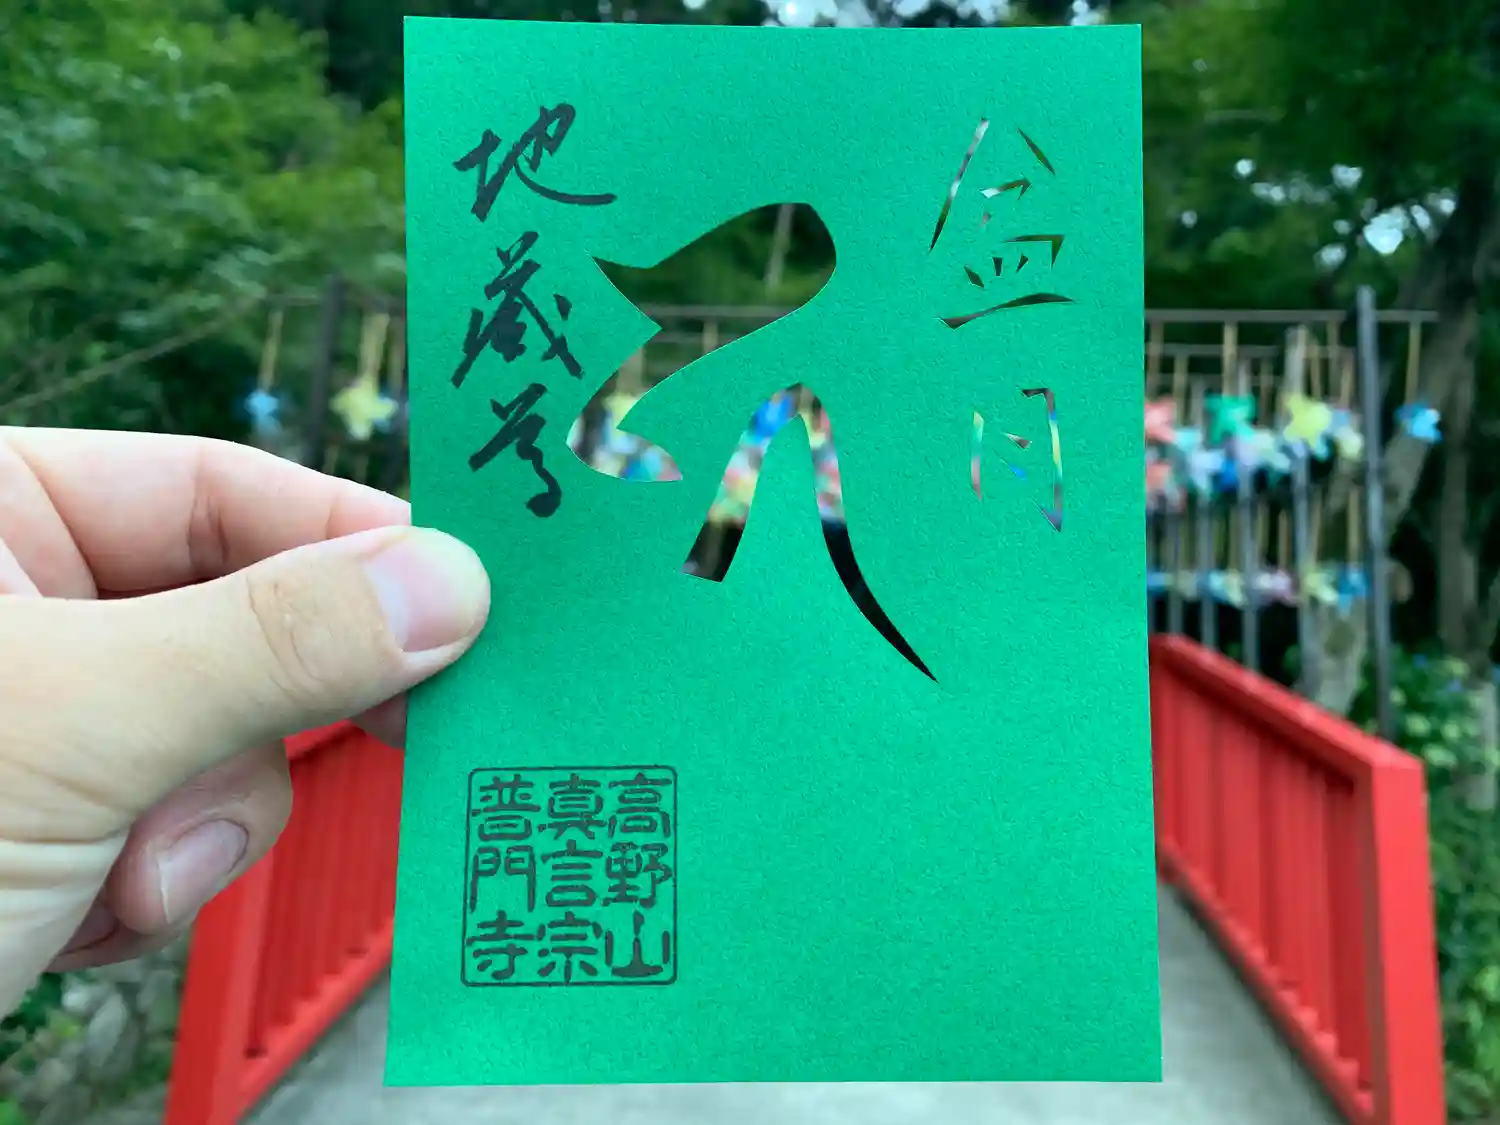 盆月
𑖮
地蔵尊
高野山
真言宗
普門寺